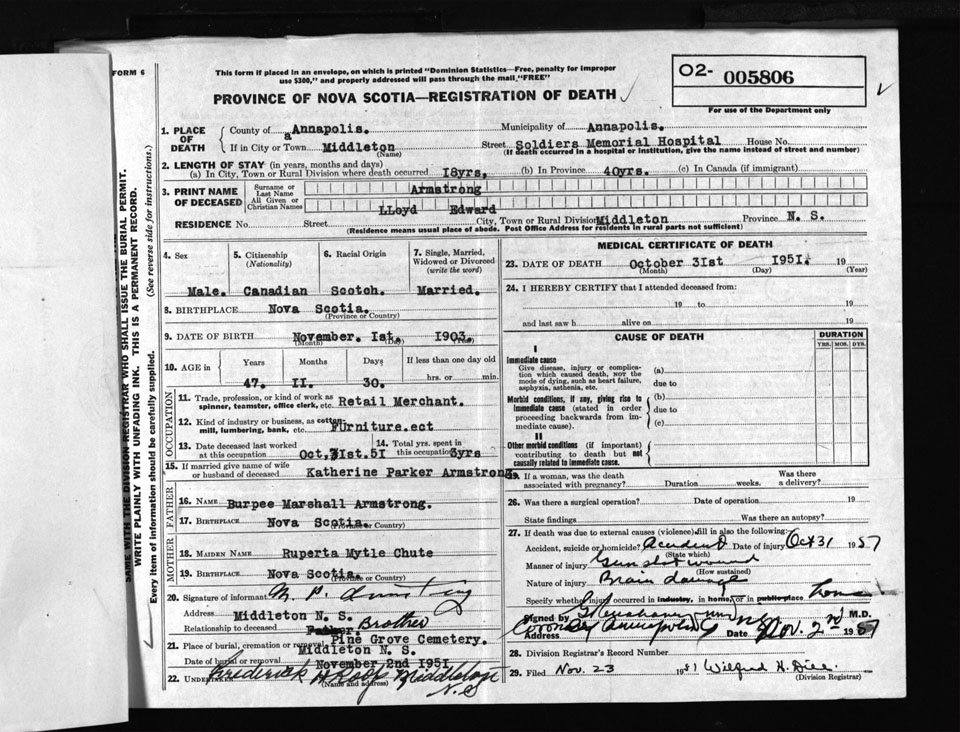 FORM 6
This form if placed in an envelope, on which is printed "Dominion Statistics—Free, penalty for improper
use $300," and properly addressed will pass through the mail, "FREE"
O2- 005806
For use of the Department only
PROVINCE OF NOVA SCOTIA—REGISTRATION OF DEATH
SAME WITH THE DIVISION REGISTRAR WHO SHALL ISSUE THE BURIAL PERMIT.
WRITE PLAINLY WITH UNFADING INK. THIS IS A PERMANENT RECORD.
Every item of information should be carefully supplied. (See reverse side for instructions.)
1. PLACE OF DEATH County of Annapolis. Municipality of Annapolis.
If in City or Town Middleton (Name) Street Soldiers Memorial Hospital House No.
(If death occurred in a hospital or institution, give the name instead of street and number)
2. LENGTH OF STAY (in years, months and days)
(a) In City, Town or Rural Division where death occurred I8yrs. (b) In Province 40yrs. (c) In Canada (if immigrant)
3. PRINT NAME OF DECEASED Surname or Last Name Armstrong
All Given or Christian Names LLoyd Edward
RESIDENCE No. Street City, Town or Rural Division Middleton Province N. S.
(Residence means usual place of abode. Post Office Address for residents in rural parts not sufficient)
4. Sex 5. Citizenship (Nationality) 6. Racial Origin 7. Single, Married, Widowed or Divorced (write the word)
Male. Canadian Scotch. Married.
8. BIRTHPLACE Nova Scotia. (Province or Country)
9. DATE OF BIRTH November. Ist. I903. (Month) (Day) (Year)
10. AGE in Years Months Days If less than one day old
47. II. 30. hrs. or min.
OCCUPATION
11. Trade, profession, or kind of work as spinner, teamster, office clerk, etc. Retail Merchant.
12. Kind of industry or business, as cotton mill, lumbering, bank, etc. FUrniture.ect
13. Date deceased last worked at this occupation Oct,3Ist.5I 14. Total yrs. spent in this occupation 3yrs
15. If married give name of wife or husband of deceased Katherine Parker Armstrong.
FATHER
16. NAME Burpee Marshall Armstrong.
17. BIRTHPLACE Nova Scotia. (Province or Country)
MOTHER
18. MAIDEN NAME Ruperta Mytle Chute
19. BIRTHPLACE Nova Scotia. (Province or Country)
20. Signature of informant
Address Middleton N. S.
Relationship to deceased Father. Brother
21. Place of burial, cremation or removal Pine Grove Cemetery.
Middleton N. S.
Date of burial or removal November 2nd I951.
22. UNDERTAKER Frederick H Roop Middleton
(Name and address) N.S
MEDICAL CERTIFICATE OF DEATH
23. DATE OF DEATH October 3Ist I95I. 19
(Month) (Day) (Year)
24. I HEREBY CERTIFY that I attended deceased from:
19 to 19
and last saw h alive on 19
CAUSE OF DEATH DURATION
YRS. MOS. DYS.
I
Immediate cause
Give disease, injury or complication which caused death, NOT the mode of dying, such as heart failure, asphyxia, asthenia, etc. (a)
due to
Morbid conditions, if any, giving rise to immediate cause (stated in order proceeding backwards from immediate cause). (b)
due to
(c)
II
Other morbid conditions (if important) contributing to death but not causally related to immediate cause.
If a woman, was the death associated with pregnancy? Duration weeks. Was there a delivery?
26. Was there a surgical operation? Date of operation 19
State findings Was there an autopsy?
27. If death was due to external causes (violence) fill in also the following:
Accident, suicide or homicide? Accident Date of injury Oct 31 1951
(State which)
Manner of injury Gun shot wound
(How sustained)
Nature of injury Brain damage
Specify whether injury occurred in industry, in home, or in public place home
M.D.
Address Date Nov. 2nd 1951
28. Division Registrar's Record Number
29. Filed Nov. 23 1951 Wilfred H. Dill.
(Division Registrar)